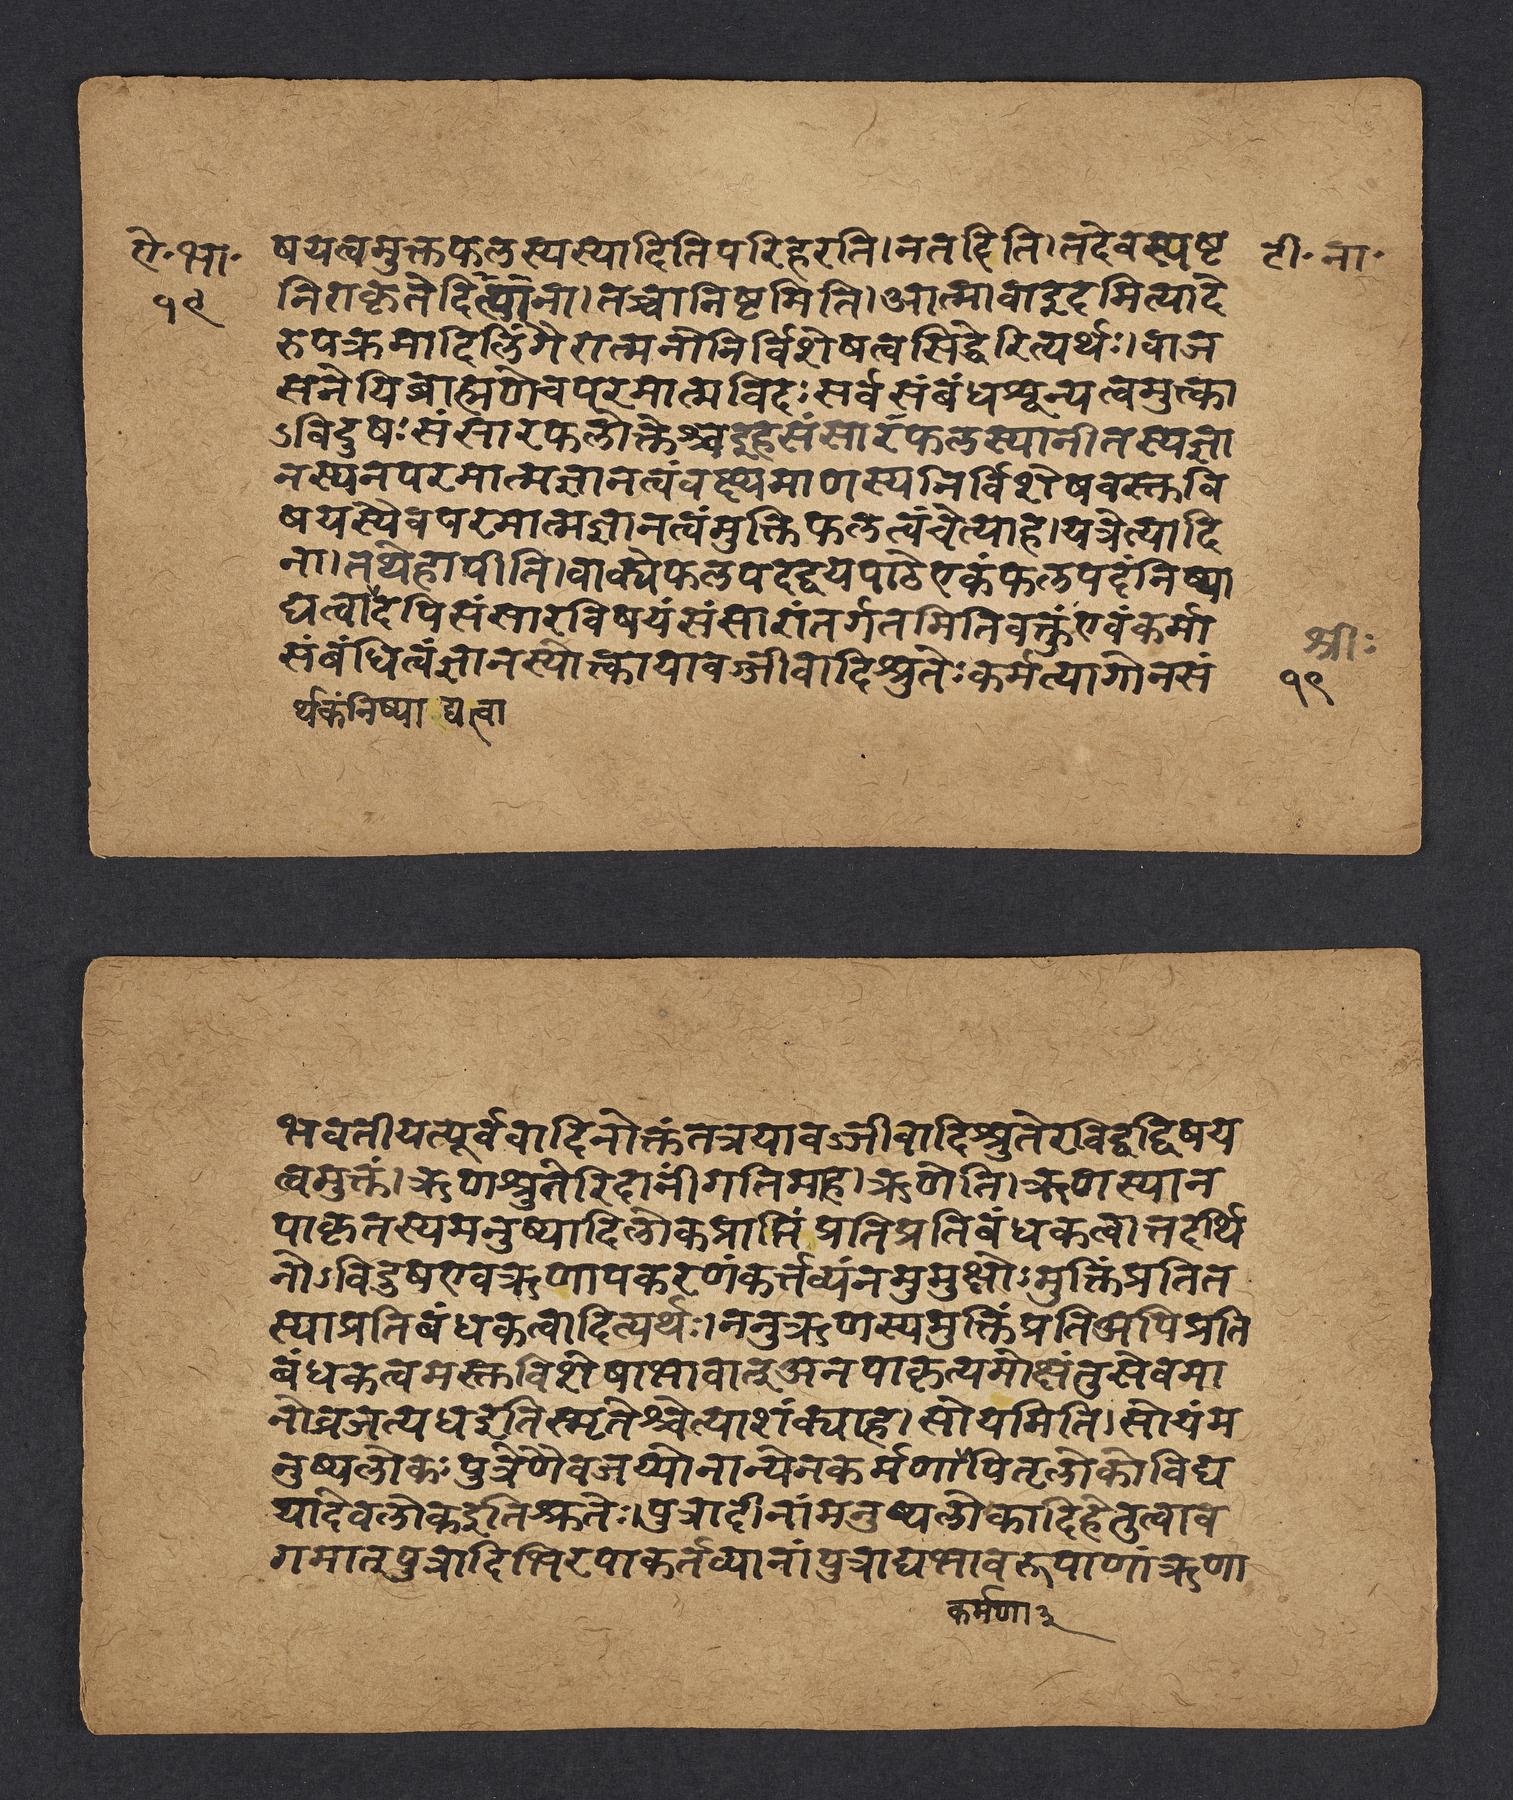 ऐ·भा·
१९
टी·ना·
षयत्वमुक्तफलस्यस्यादितिपरिहरति।नतदिति।तदेवस्पष्ट
निराकृतेदित्यांना।तच्चानिष्टमिति।आत्मावाइदमित्यादे
रुपक्रमादिलिंगेरात्मनोनिर्विशेषत्वसिद्धेरित्यर्थः।वाज
सनेयिब्राह्मणेचपरमात्मविदःसर्वसंबंधशून्यत्वमुत्का
ऽविदुषःसंसारफलोक्तेश्चइहसंसारफलस्यानीतस्यज्ञा
नस्यनपरमात्मज्ञानत्वंवक्ष्यमाणस्यनिर्विशेषवस्तवि
षयस्यैवपरमात्मज्ञानत्वंमुक्तिफलत्वंचेत्याह।यत्रेत्यादि
ना।तथेहापीति।वाक्येफलपदद्वयपाठेएकंफलपदंनिष्पा
द्यत्वादपिसंसारविषयंसंसारांतर्गतमितिवक्तुंएवंकर्मा
संबंधित्वंज्ञानस्योत्कायावज्जीवादिश्रुतेःकर्मत्यागोनसं
र्थकंनिष्पा द्यत्वा
श्रीः
१९
भवतीयत्पूर्ववादिनोक्तंतत्रयावज्जीवादिश्रुतेरविद्वद्विषय
त्वमुक्तं।ऋणश्रुतेरिदानींगतिमाह।ऋणेति।ऋणस्यान
पाकृतस्यमनुष्यादिलोकप्राप्तिंप्रतिप्रतिबंधकत्वात्तदर्थि
नोऽविदुषएवऋणापकरणंकर्त्तव्यंनमुमुक्षोःमुक्तिंप्रतित
स्याप्रतिबंधकत्वादित्यर्थः।ननुऋणस्यमुक्तिंप्रतिअपिप्रति
बंधकत्वमस्तविशेषाभावात्अनपाकृत्यमोक्षंतुसेवमा
नोव्रजत्यधइतिस्मृतेश्चेत्याशंक्याह।सोयमिति।सोयंम
नुष्यलोकःपुत्रेणैवजय्योनान्येनकर्मणापितृलोकोविद्य
यादेवलोकइतिश्रुतेः।पुत्रादीनांमनुष्यलोकादिहेतुत्वाव
गमात्पुत्रादिभिरपाकर्तव्यानांपुत्राद्यभावरूपाणांऋणा
कर्मणा३